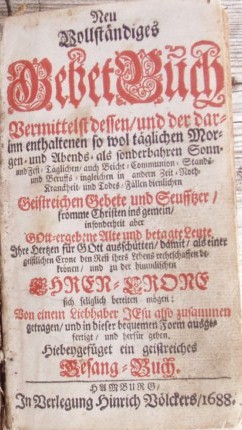 Neu
Vollständiges
Gebet Buch
Vermittelst dessen/und der dar-
inn enthaltenen so wol täglichen Mor-
gen- und Abends- als sonderbahren Sonn-
und Fest-Täglichen/auch Beicht-Communion-Stands-
und Beruffs-ingleichen in andern Zeit-Noth-
Kranckheit-und Todes-Fällen dienlichen
Geistreichen Gebete und Seufftzer/
fromme Christen ins gemein/
insonderheit aber
GOtt-ergebene Alte und betagte Leute
Ihre Hertzen für GOtt ausschütten/ damit/ als einer
geistlichen Crone den Rest ihres Lebens rechtschaffen be-
krönen/ und zu der himmlischen
EHREN-CRONE
sich seliglich bereiten mögen:
Von einem Liebhaber JEsu also zusammen
getragen/ und in dieser bequemen Form ausge-
fertiget/ und herfür geben.
Hiebeygefüget ein geistreiches
Gesang-Buch.
HAMBURG/
In Verlegung Hinrich Völckers/1688.